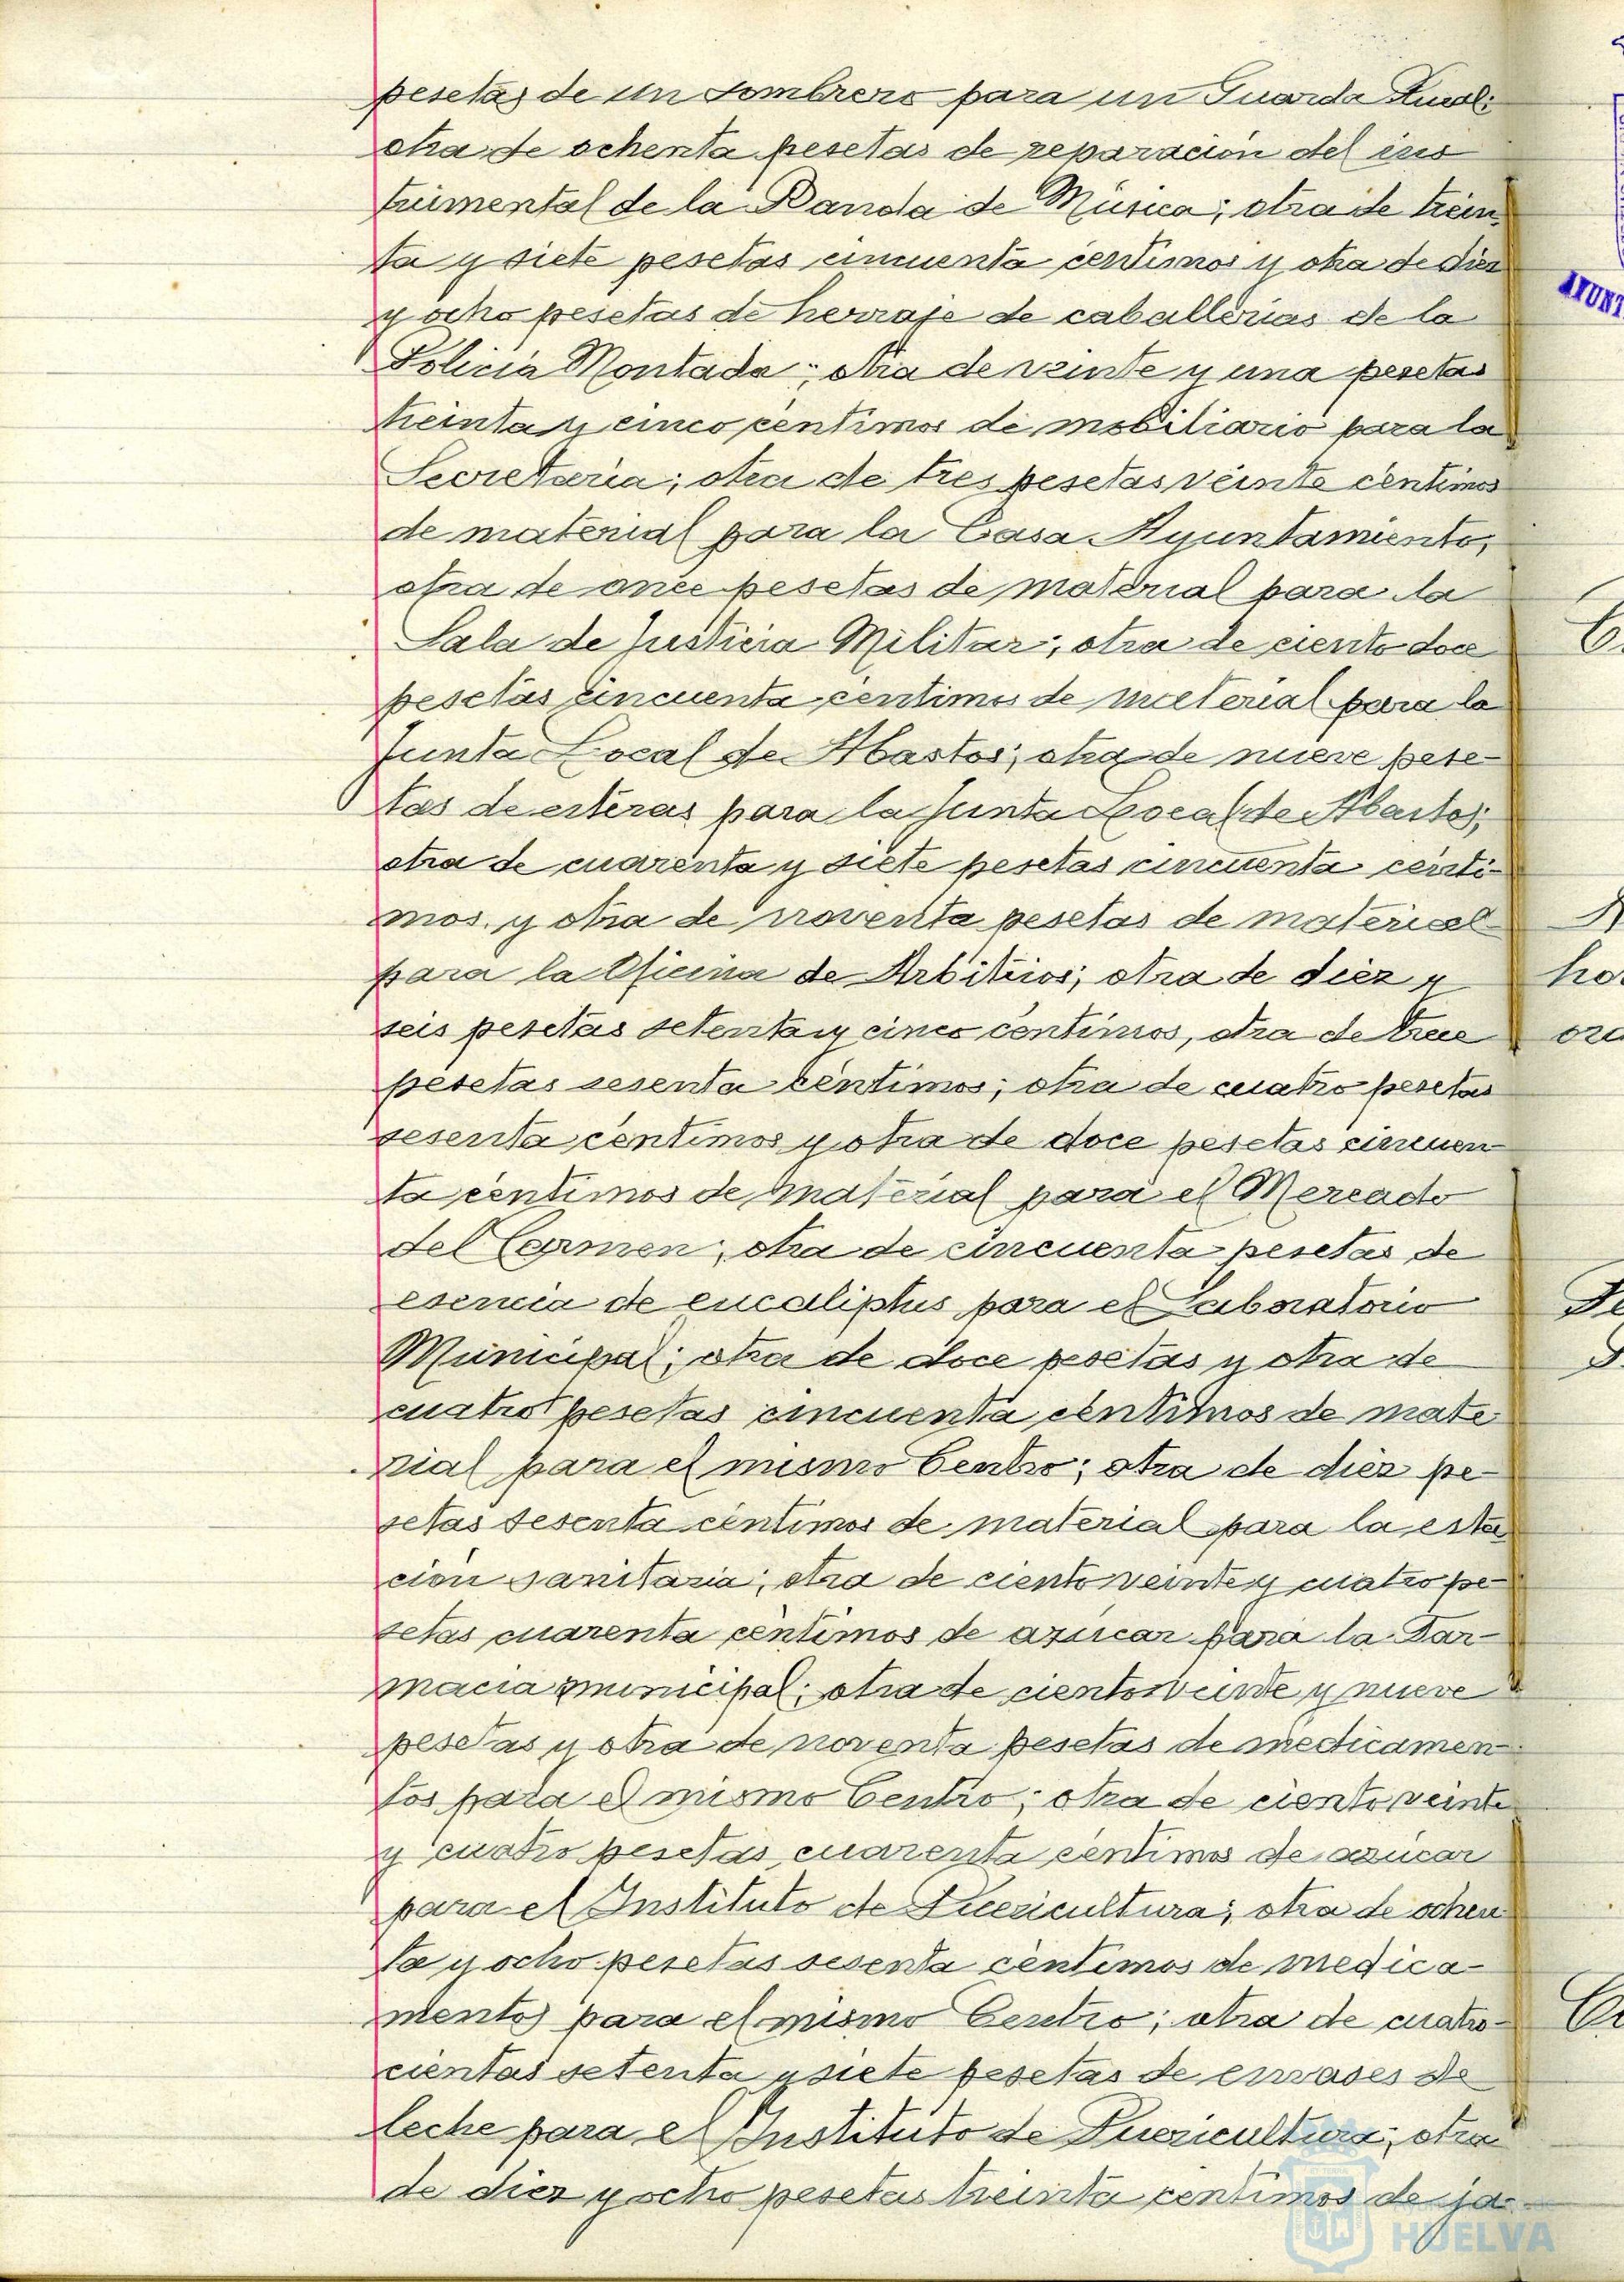 pesetas de un sombrero para un Guarda Rural;
otra de ochenta pesetas de reparación del ins
trumental de la Banda de Música; otra de trein
ta y siete pesetas cincuenta centimos y otra de diez
y ocho pesetas de herraje de caballerias de la
Policia Montada; otra de veinte y una pesetas
treinta y cinco centimos de mobiliario para la
Secretaria; otra de tres pesetas veinte centimos
de material para la Casa Ayuntamiento,
otra de once pesetas de material para la
Sala de Justicia Militar; otra de ciento doce
pesetas cincuenta centimos de material para la
Junta Local de Abastos; otra de nueve pese-
tas de esteras para la Junta Local de Abastos;
otra de cuarenta y siete pesetas cincuenta centi-
mos y otra de noventa pesetas de material
para la Oficina de Arbitrios; otra de diez y
seis pesetas setenta y cinco centimos, otra de trece
pesetas sesenta centimos; otra de cuatro pesetas
sesenta centimos y otra de doce pesetas cincuen
ta centimos de material para el Mercado
del Carmen; otra de cincuenta pesetas de
esencia de eucaliptus para el Laboratorio
Municipal; otra de doce pesetas y otra de
cuatro pesetas cincuenta centimos de mate
rial para el mismo Centro; otra de diez pe-
setas sesenta centimos de material para la esta
ción sanitaria; otra de ciento veinte y cuatro pe
setas cuarenta centimos de azucar para la Far-
macia municipal; otra de ciento veinte y nueve
pesetas y otra de noventa pesetas de medicamen
tos para el mismo Centro; otra de ciento veinte
y cuatro pesetas cuarenta centimos de azucar
para el Instituto de Puericultura; otra de ochen
ta y ocho pesetas sesenta centimos de medica-
mentos para el mismo Centro; otra de cuatro-
cientas setenta y siete pesetas de envases de
leche para el Instituto de Puericultura; otra
de diez y ocho pesetas treinta centimos de ja-
AYUNT
HUELVA